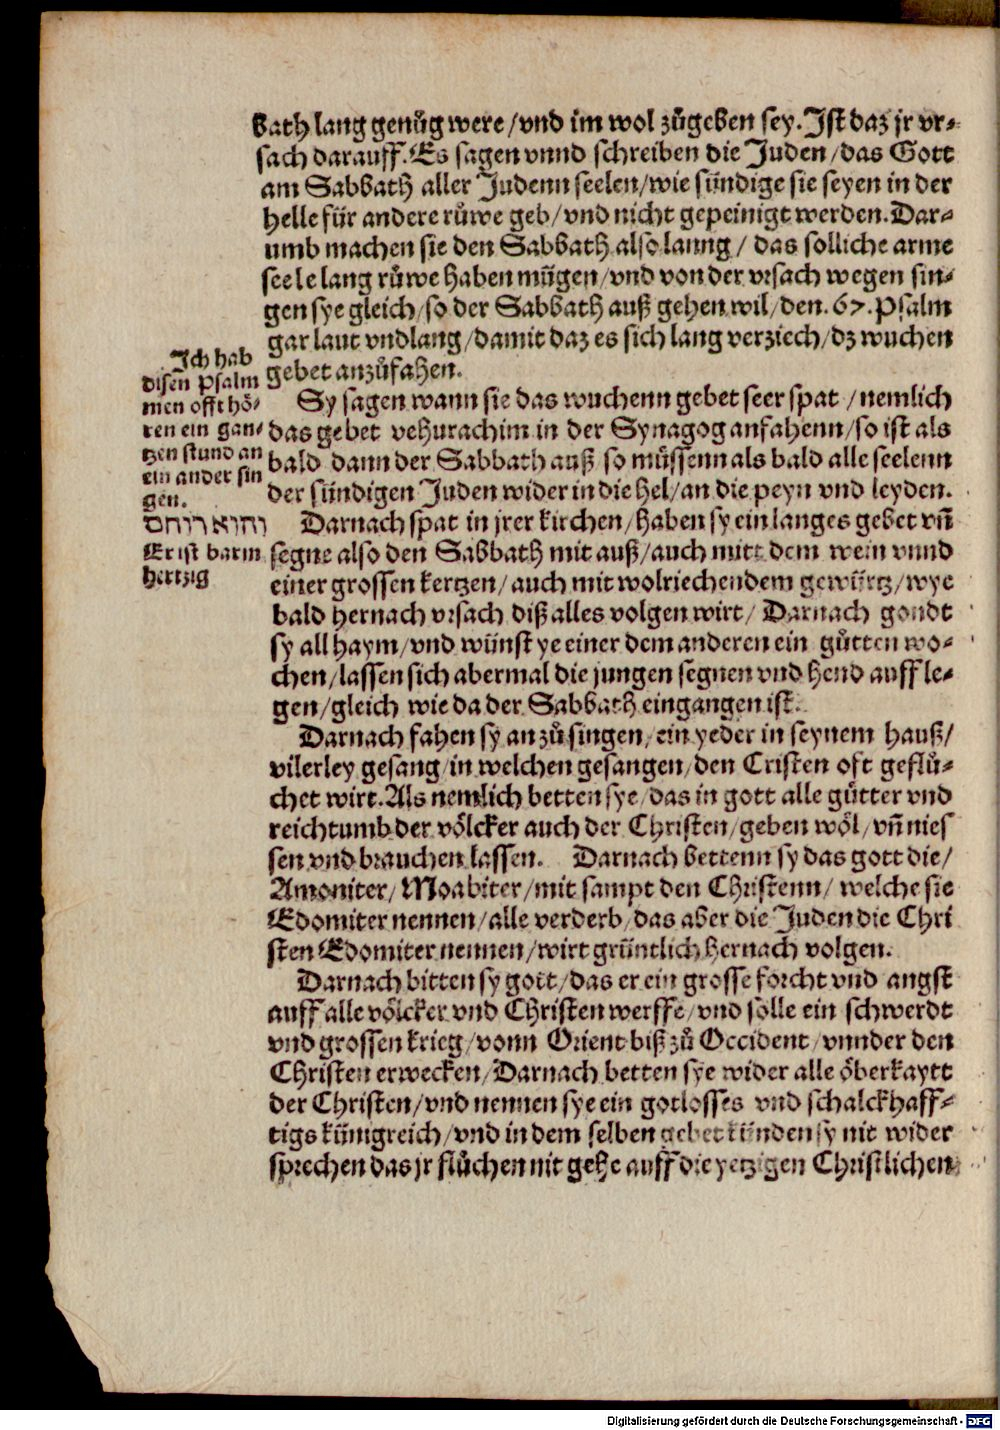 bath lang genůg were/vnd im wol zůgeben sey. Jst daz jr vr-
sach darauff. Es sagen vnnd schreiben die Juden/das Gott
am Sabbath aller Judenn seelen/wie sündige sie seyen in der
helle für andere růwe geb/vnd nicht gepeinigt werden. Dar-
umb machen sie den Sabbath also lanng/ das solliche arme
seele lang růwe haben mügen/vnd von der vrsach wegen sin-
gen sye gleich/so der Sabbath auß gehen wil/den. 67. Psalm
gar laut vnd lang/damit daz es sich lang verziech/dz wuchen
gebet anzůfahen.
Jch hab
disen Psalm
men offt hö-
ren ein gan-
tzen stund an
ein ander sin
gen.
והוא רוחם
Er ist barm
hertzig
Sy sagen wann sie das wuchenn gebet seer spat /nemlich
das gebet vehurachim in der Synagog anfahenn/so ist als
bald dann der Sabbath auß so müssenn als bald alle seelenn
der sündigen Juden wider in die hel/an die peyn vnd leyden.
Darnach spat in jrer kirchen/haben sy ein langes gebet vñ
segne also den Sabbath mit auß/auch mitt dem wein vnnd
einer grossen kertzen/auch mit wolriechendem gewürtz/wye
bald hernach vrsach diß alles volgen wirt/ Darnach gondt
sy all haym/vnd wünst ye einer dem anderen ein gůtten wo-
chen/lassen sich abermal die jungen segnen vnd hend auff le-
gen/gleich wie da der Sabbath eingangen ist.
Darnach fahen sy an zů singen/ein yeder in seynem hauß/
vilerley gesang/in welchen gesangen/den Cristen oft geflů-
chet wirt. Als nemlich betten sye/das in gott alle gůtter vnd
reichtumb der völcker auch der Christen/geben wöl/vñ nies
sen vnd brauchen lassen. Darnach bettenn sy das gott die/
Amoniter/Moabiter/mit sampt den Christenn/ welche sie
Edomiter nennen/alle verderb/das aber die Juden die Chri
sten Edomiter nennen/wirt grüntlich hernach volgen.
Darnach bitten sy gott/das er ein grosse forcht vnd angst
auff alle völcker vnd Christen werffe/vnd solle ein schwerdt
vnd grossen krieg/vonn Orient biß zů Occident/vnnder den
Christen erwecken/Darnach betten sye wider alle öberkaytt
der Christen/vnd nennen sye ein gotlosses vnd schalckhaff-
tigs künigreich/vnd in dem selben gebet künden sy nit wider
sprechen das jr flůchen nit gehe auff die yetzigen Christlichen
Digitalisierung gefördert durch die Deutsche Forschungsgemeinschaft - DFG